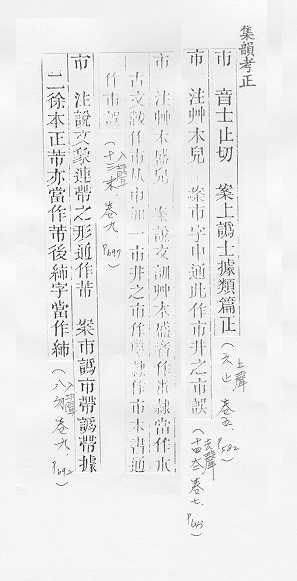 集韻考正
市 音士止切 案上譌士據類篇正 (上聲 六止 卷五 P582)
市 注艸木皃 案市字中通此作市井之市誤 (去聲 卷七 P643)
巿 注艸木盛皃 案說文訓艸木盛者作 隸當作
古文 作市从巾加一市井之市作 隸作市 書通
作市誤 (入聲 十三末 卷九 P697)
巿 注說文象連帶之形通作芾 案市譌市帶譌帶據
二徐本正芾亦當作芾後 字當作
(入聲 八勿 卷九 P692)